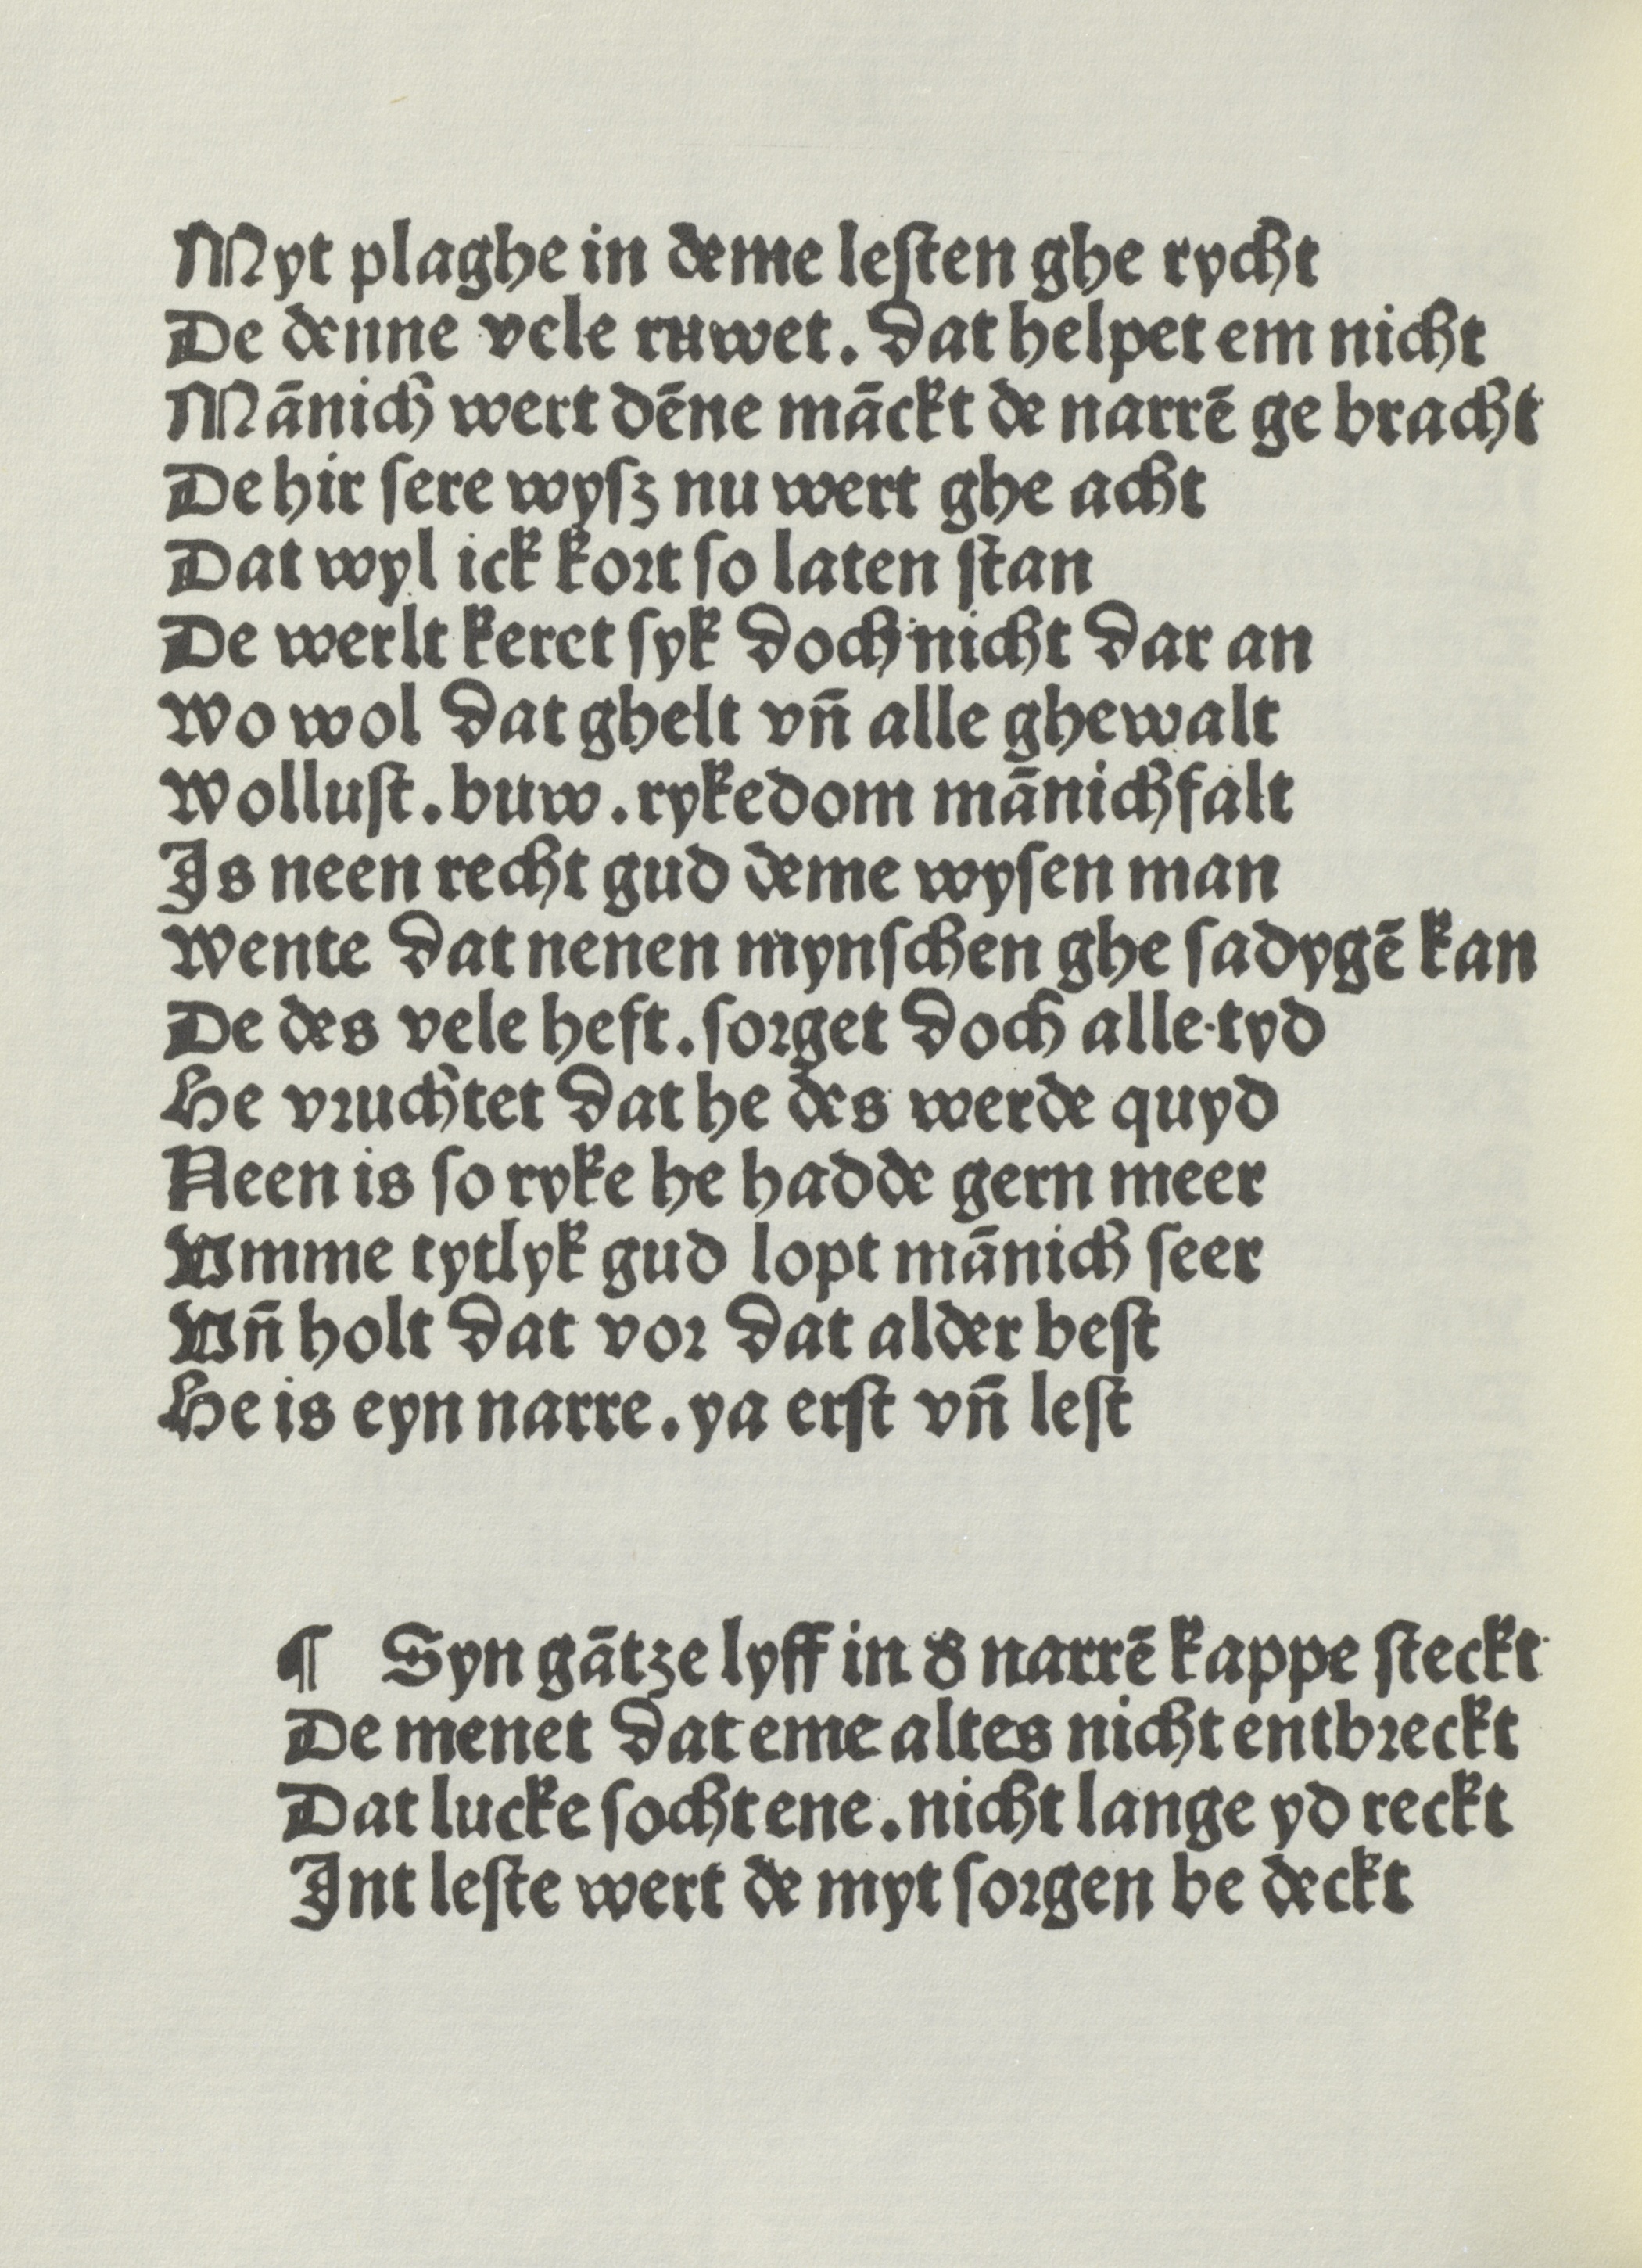 Myt plaghe in deme leſten ghe rycht
De denne vele ruwet. dat helpet em nicht
Mānich wert dēne māckt de narrē ge bracht
De hir ſere wyſz nu wert ghe acht
Dat wyl ick koꝛt ſo laten ſtan
De werlt keret ſyk doch nicht dar an
Wo wol dat ghelt vn̄ alle ghewalt
Wolluſt. buw. rykedom mānichfalt
Is neen recht gud deme wyſen man
Wente dat nenen mynſchen ghe ſadygē kan
De des vele heft. ſoꝛget doch alle tyd
He vꝛuchtet dat he des werde quyd
Neen is ſo ryke he hadde gern meer
Vmme tytlyk gud lopt mānich ſeer
Vn̄ holt dat voꝛ dat alder beſt
He is eyn narre. ya erſt vn̄ leſt
¶ Syn gātze lyff in 8 narrē kappe ſteckt
De menet dat eme altes nicht entbꝛeckt
Dat lucke ſocht ene. nicht lange yd reckt
Int leſte wert de myt ſoꝛgen be deckt